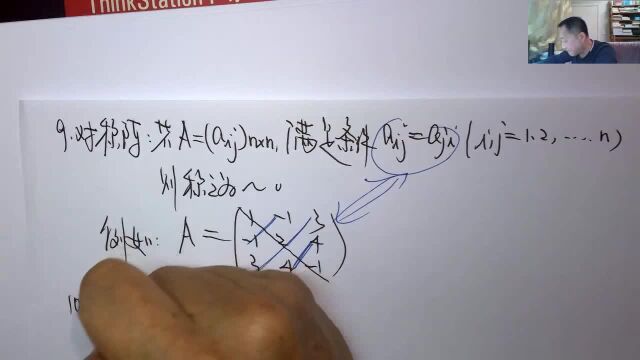 ThinkStation P
9.对称阵:若A=(aij)n×n,满足条件aij=aji(i,j=1.2,.....n)
则称之为~。
例如: A=(1 -1 3
-1 2 4
3 4 -1)
10